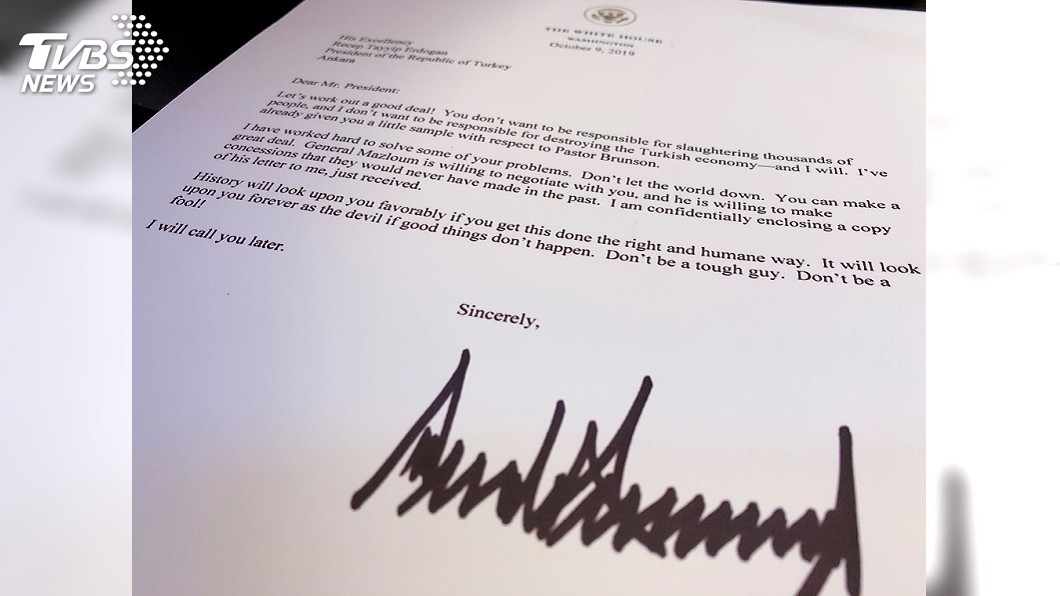 TVBS
NEWS
THE WHITE HOUSE
WASHINGTON
October 9, 2019
His Excellency
Recep Tayyip Erdogan
President of the Republic of Turkey
Ankara
Dear Mr. President:
Let's work out a good deal! You don't want to be responsible for slaughtering thousands of
people, and I don't want to be responsible for destroying the Turkish economy—and I will. I've
already given you a little sample with respect to Pastor Brunson.
I have worked hard to solve some of your problems. Don't let the world down. You can make a
great deal. General Mazloum is willing to negotiate with you, and he is willing to make
concessions that they would never have made in the past. I am confidentially enclosing a copy
of his letter to me, just received.
History will look upon you favorably if you get this done the right and humane way. It will look
upon you forever as the devil if good things don't happen. Don't be a tough guy. Don't be a
fool!
I will call you later.
Sincerely,